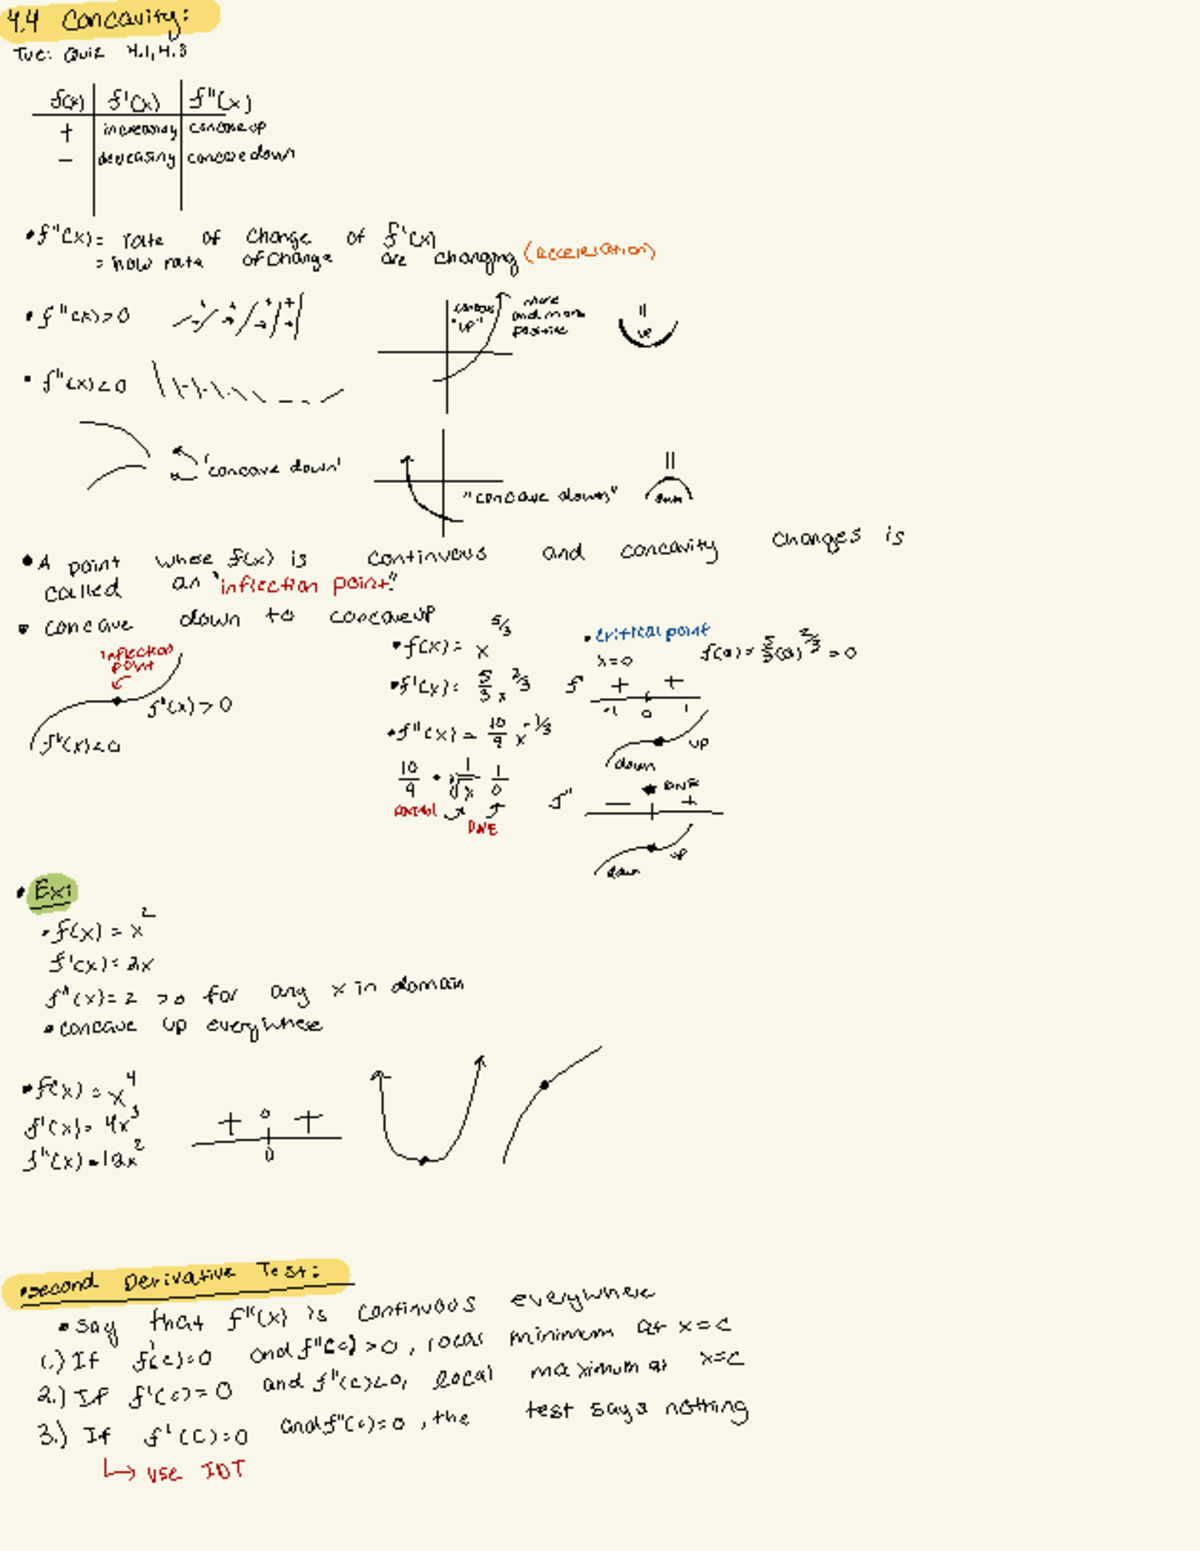 4.4 Concavity:
Tue: Quiz 4.1, 4.3
f(x) f'(x) f"(x)
+ increasing concave up
- decreasing concave down
• f"(x) = rate of change of f'(x)
= how rate of change are changing (acceleration)
• f"(x) > 0
concave "up"
more and more positive
up
• f"(x) < 0
'concave down'
"concave down"
down
• A point where f(x) is continuous and concavity changes is
called an "inflection point."
• concave down to concave up
inflection point
f'(x) > 0
f'(x) < 0
• f(x) = x^5/3
• f'(x) = 5/3 x^2/3
• f"(x) = 10/9 x^-1/3
10/9 • 1/∛x 1/0
DNE
• critical point
x=0
f(0) = 5/3 (0)^2/3 = 0
f' + +
-1 0 1
down up
f" - DNE +
down up
• Ex:
• f(x) = x^2
f'(x) = 2x
f"(x) = 2 >0 for any x in domain
• concave up everywhere
• f(x) = x^4
f'(x) = 4x^3
f"(x) = 12x^2
+ 0 +
0
• Second Derivative Test:
• say that f"(x) is continuous everywhere
1.) If f'(c)=0 and f"(c) > 0, local minimum at x=c
2.) If f'(c) = 0 and f"(c) < 0, local maximum at x=c
3.) If f'(c)=0 and f"(c)=0, the test says nothing
↳ use 1DT